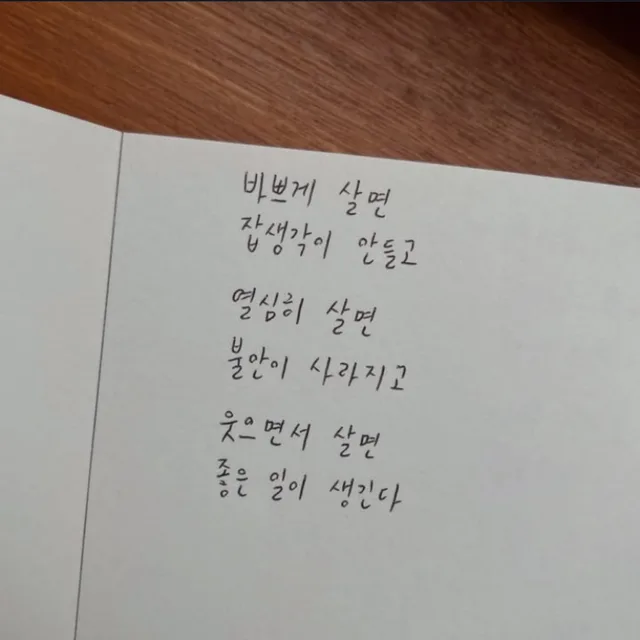 바쁘게 살면
잡생각이 안들고
열심히 살면
불안이 사라지고
웃으면서 살면
좋은 일이 생긴다